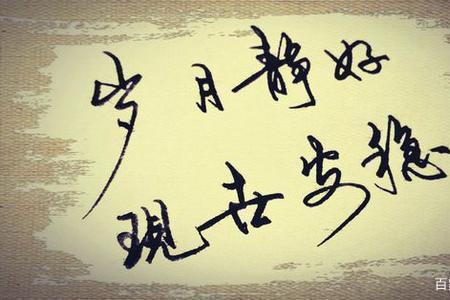 岁月静好
現世安稳
百